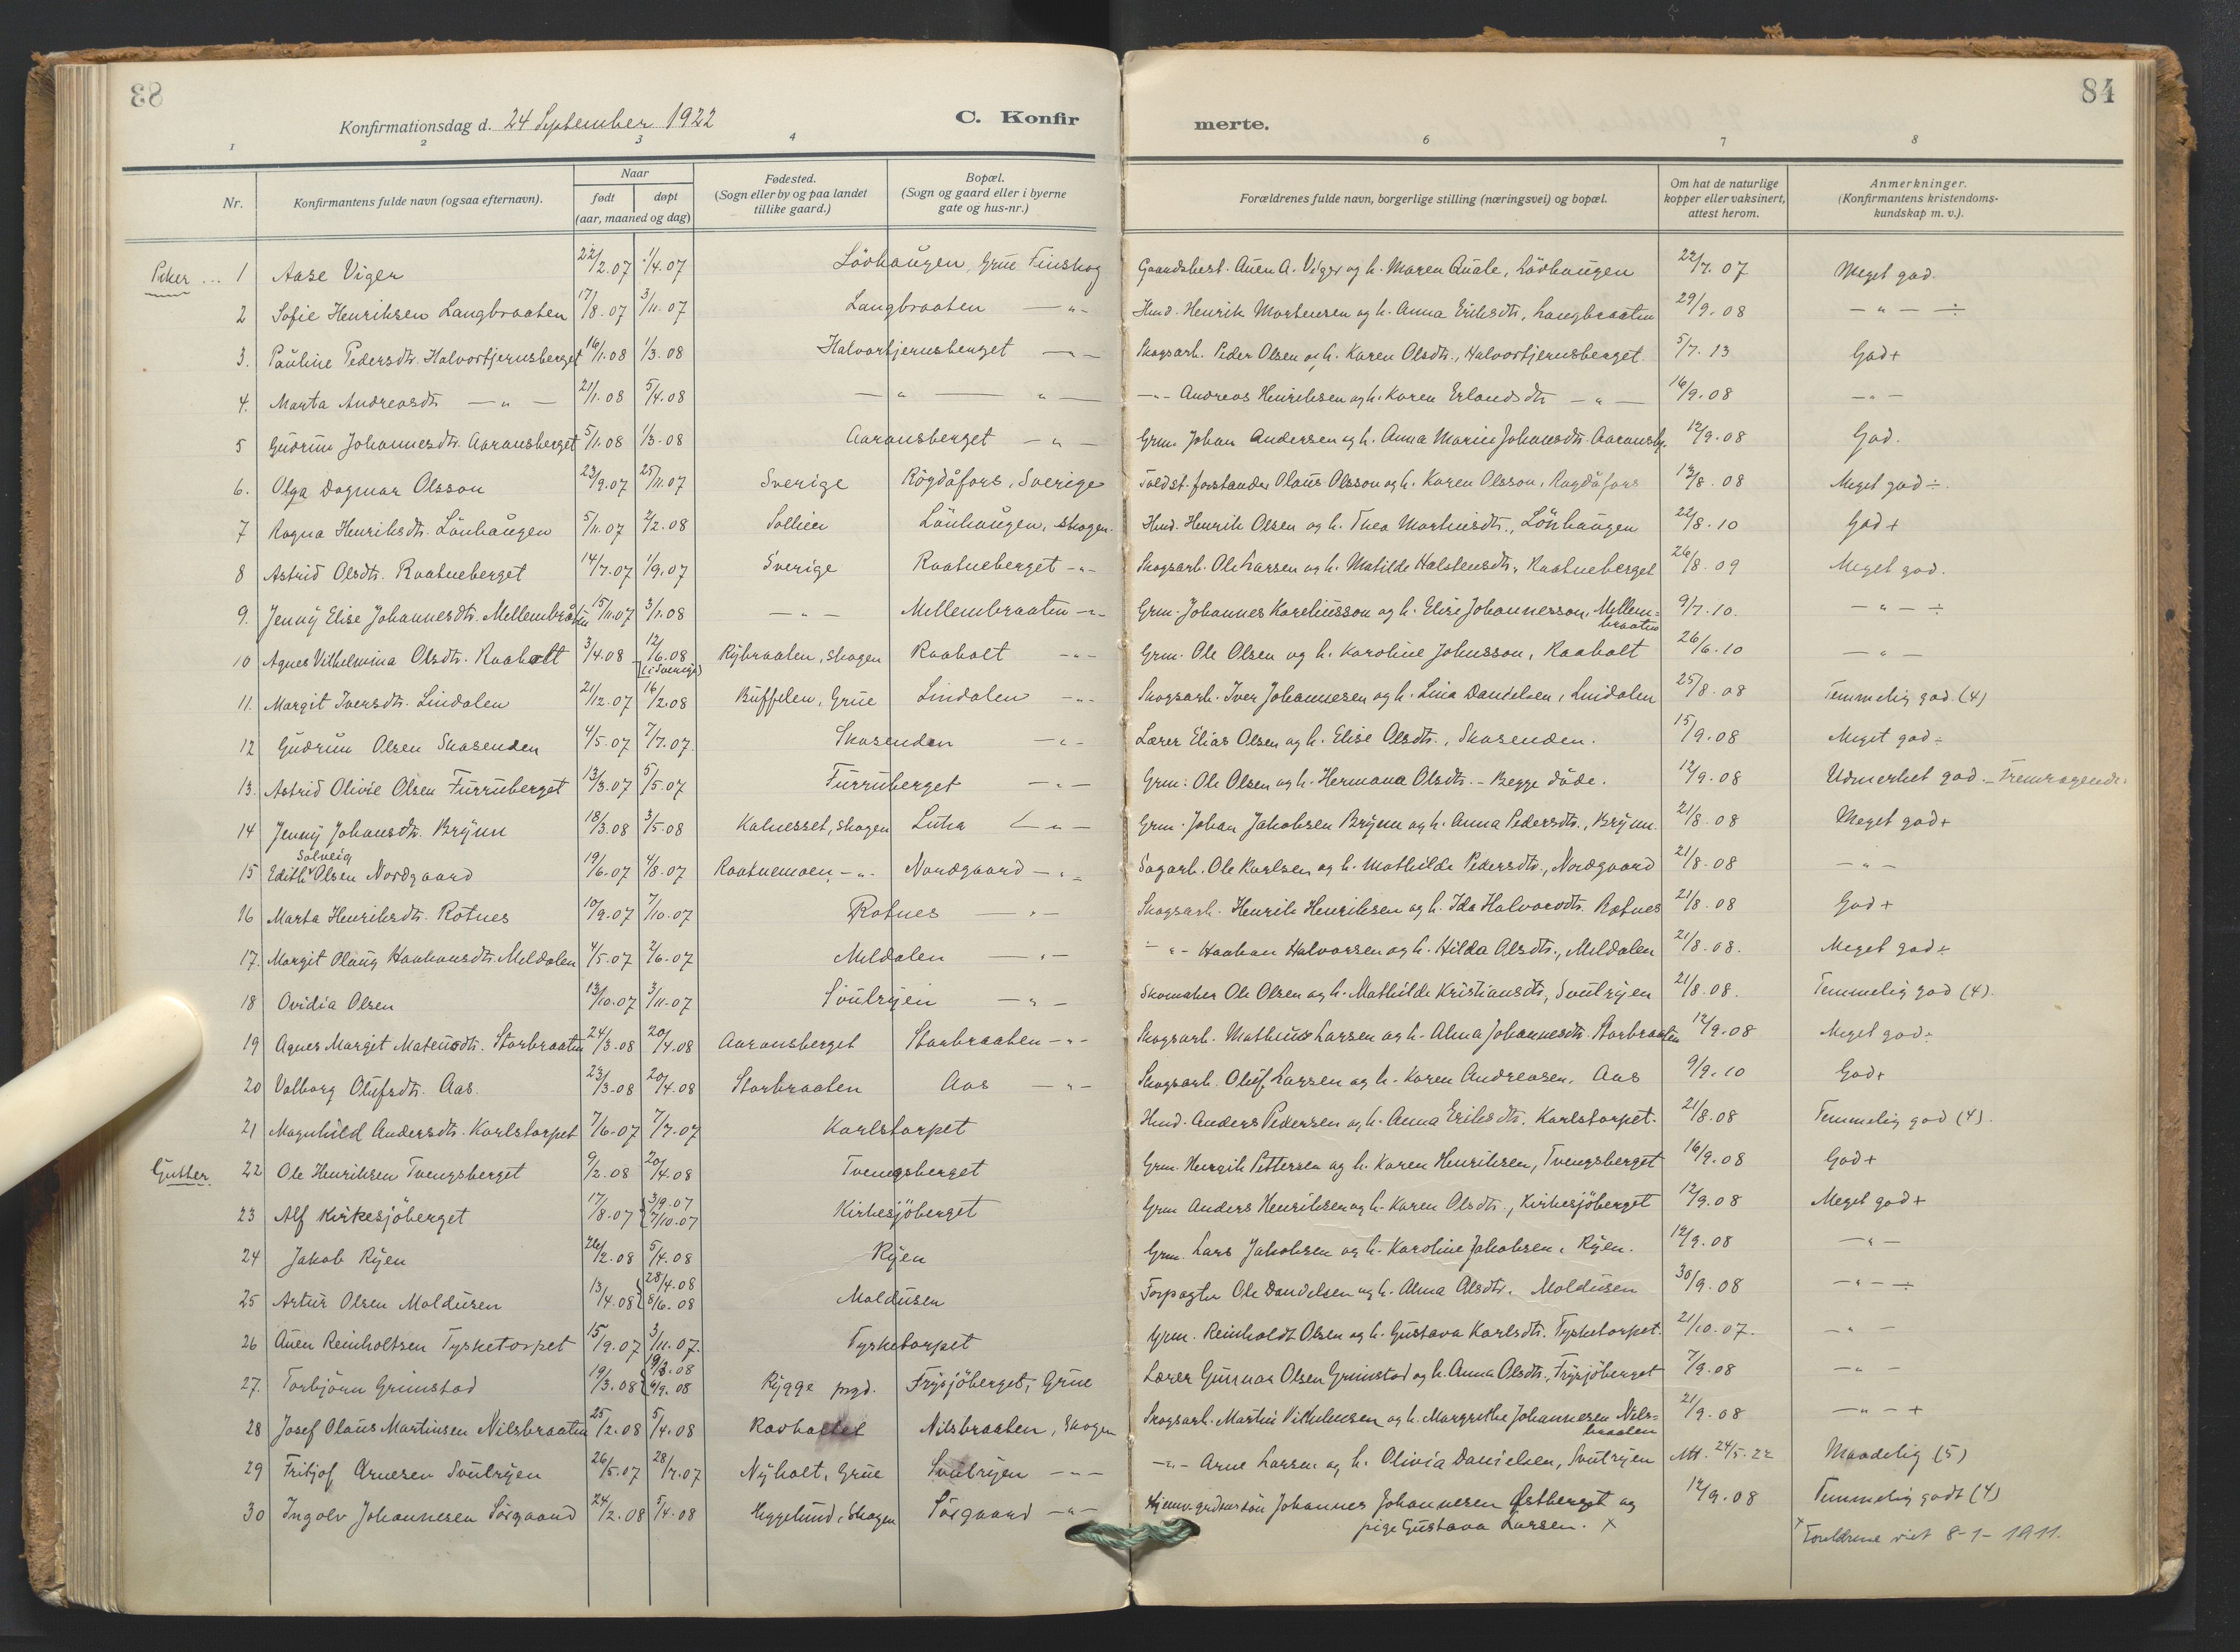 83
84
Konfirmationsdag d. 24 September 1922
C. Konfir
merte.
1 2 3 4 6 7 8
Nr.
Konfirmantens fulde navn (ogsaa efternavn).
Naar
født døpt
(aar, maaned og dag)
Fødested.
(Sogn eller by og paa landet
tillike gaard.)
Bopæl.
(Sogn og gaard eller i byerne
gate og hus-nr.)
Forældrenes fulde navn, borgerlige stilling (næringsvei) og bopæl.
Om hat de naturlige
kopper eller vaksinert,
attest herom.
Anmerkninger.
(Konfirmantens kristendoms-
kundskap m. v.).
Piker ... 1 Aase Viger 22/2.07 1/4.07 Lövhaugen, Grue Finskog Gaardsbest. Auen A. Viger og h. Maren Quale, Lövhaugen 22/7.07 Meget god.
2 Sofie Henriksen Langbraaten 17/8.07 3/11.07 Langbraaten — „ - Hmd. Henrik Mortensen og h. Anna Eriksdtr, Langbraaten 29/9.08 — „ — ÷
3. Pauline Pedersdtr. Halvortjernsberget 16/1.08 1/3.08 Halvortjernsberget — „ — Skogsarb. Peder Olsen og h. Karen Olsdtr., Halvortjernsberget. 5/7.13 God+
4. Marta Andreasdtr — „ — 21/1.08 5/4.08 — „ — „ — - „ - Andreas Henriksen og h. Karen Erlandsdtr — „ — 16/9.08 — „ —
5 Gudrun Johannesdtr. Aaransberget 5/1.08 1/3.08 Aaransberget — „ — Grm. Johan Andersen og h. Anna Marie Johansdtr. Aaransbg. 12/9.08 God.
6. Olga Dagmar Olsson 23/9.07 25/11.07 Sverige Rögdåfors, Sverige Toldst. forstander Olaus Olsson og h. Karen Olsson, Rögdåfors 13/8.08 Meget god ÷.
7 Ragna Henriksdtr. Lönhaugen 5/11.07 2/2.08 Sollien Lönhaugen, skogen. Hmd. Henrik Olsen og h. Thea Martinsdtr., Lönhaugen 22/8.10 God +
8 Astrid Olsdtr. Raatneberget 14/7.07 1/9.07 Sverige Raatneberget - „ - Skogsarb. Ole Larsen og h. Matilde Halstensdtr, Raatneberget 26/8.09 Meget god.
9. Jenny Elise Johannesdtr. Mellembråten 15/11.07 3/1.08 — „ — Mellembraaten - „ - Grm. Johannes Karelinsson og h. Elise Johannesson, Mellem=
braaten 9/7.10. — „ — ÷
10 Agnes Vilhelmina Olsdtr. Raaholt 3/4.08 12/6.08 Rybraaten, skogen Raaholt - „ - Grm. Ole Olsen og h. Karoline Johnsson, Raaholt 26/6.10 — „ —
(i Sverige)
11. Margit Iversdtr. Lindalen 21/12.07 16/2.08 Buffelen, Grue Lindalen - „ - Skogsarb. Iver Johannesen og h. Lina Danielsen, Lindalen 25/8.08 Temmelig god (4)
12 Gudrun Olsen Skasenden 4/5.07 7/7.07. Skasenden — „ - Lærer Elias Olsen og h. Elise Olsdtr., Skasenden. 15/9.08 Meget god ÷
13. Astrid Olivie Olsen Furruberget 13/3.07 5/5.07 Furruberget — „ — Grm: Ole Olsen og h. Hermana Olsdtr. - Begge döde. 12/9.08 Udmerket god - Fremragende.
14 Jenny Johansdtr. Brynn 18/3.08 3/5.08 Kalnesset, skogen Lutra — „ — Grm. Johan Jakobsen Brynn og h. Anna Pedersdtr., Brynn. 21/8.08 Meget god+
Solveig
15 Edith Olsen Nordgaard 19/6.07 4/8.07 Raatnemoen - „ - Nordgaard - „ - Sagarb. Ole Karlsen og h. Mathilda Pedersdtr., Nordgaard 21/8.08 — „ —
16 Marta Henriksdtr. Rotnes 10/9.07 7/10.07 Rotnes — „ — Skogsarb. Henrik Henriksen og h. Ida Halvorsdtr. Rotnes 21/8.08 God +
17. Margit Olaug Haakansdtr. Meldalen 4/5.07 2/6.07 Meldalen — „ — - „ - Haakan Halvorsen og h. Hilda Olsdtr., Meldalen 21/8.08. Meget god÷
18 Ovidia Olsen 13/10.07 3/11.07 Svulryen — „ — Skomaker Ole Olsen og h. Mathilde Kristiansdtr, Svulryen 21/8.08. Temmelig god (4).
19 Agnes Marget Mateusdtr. Storbraaten 24/3.08 20/4.08 Aaransberget Storbraaten - „ - Skogsarb. Matheus Larsen og h. Alma Johannesdtr. Storbraaten 12/9.08 Meget god÷
20 Valborg Olufsdtr. Aas. 23/3.08 20/4.08 Storbraaten Aas — „ - Skogsarb. Oluf Larsen og h. Karen Andreasen, Aas 9/9.10 God+
21 Magnhild Andersdtr. Karlstorpet 7/6.07 7/7.07 Karlstorpet Hmd. Anders Pedersen og h. Anna Eriksdtr. Karlstorpet. 21/8.08 Temmelig god (4).
Gutter. 22 Ole Henriksen Tvengsberget 9/2.08 20/4.08 Tvengsberget Grm. Henrik Pettersen og h. Karen Henriksen, Tvengsberget 16/9.08 God +
23 Alf Kirkesjöberget 17/8.07 {3/9.07 7/10.07 Kirkesjöberget Grm Anders Henriksen og h. Karen Olsdtr., Kirkesjöberget 12/9.08 Meget god +
24 Jakob Ryen 26/2.08 5/4.08 Ryen Grm. Lars Jakobsen og h. Karoline Jakobsen, Ryen. 12/9.08 — „ —
25 Artur Olsen Moldusen 13/4.08 {28/4.08 8/6.08 Moldusen Forpagter Ole Danielsen og h. Alma Olsdtr, Moldusen 30/9.08 — „ — ÷
26 Auen Reinholtsen Tysketorpet 15/9.07 3/11.07. Tysketorpet Grm. Reinholdt Olsen og h. Gustava Karlsdtr. Tysketorpet. 21/10.07. — „ —
27. Torbjörn Grimstad 19/3.08 {19/3.08 6/9.08 Rygge prgd. Frysjöberget, Grue Lærer Gunnar Olsen Grimstad og h. Anna Olsdtr., Frysjöberget 7/9.08 — „ —
28 Josef Olaus Martinsen Nilsbraaten 25/2.08 5/4.08 Nilsbraaten, Skogen Skogsarb. Martin Vilhelmsen og h. Margrethe Johannesen Nils=
braaten 21/9.08 — „ — +
29 Fritjof Arnesen Svulryen 26/5.07 28/7.07 Nyholt, Grue Svulryen - „ - - „ - Arne Larsen og h. Olivia Danielsen, Svulryen Att. 24/5.22 Maadelig (5)
30 Ingolv Johannesen Sörgaard 24/2.08 5/4.08 Hyggelund, Skogen Sörgaard - „ - Johannes Johannesen Östberget og 12/9.08 Temmelig godt (4)
pige Gustava Larsen. x
x Forældrene viet 8-1-1911.